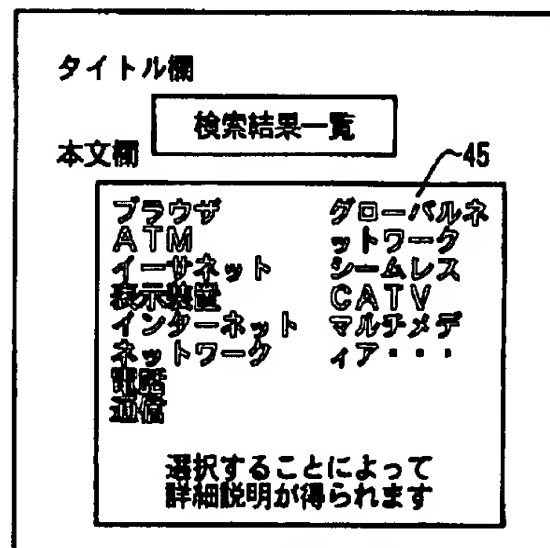 タイトル欄
検索結果一覧
本文欄
45
ブラウザ
ATM
イーサネット
表示装置
インターネット
ネットワーク
電話
通信
グローバルネ
ットワーク
シームレス
CATV
マルチメデ
ィア・・・
選択することによって
詳細説明が得られます